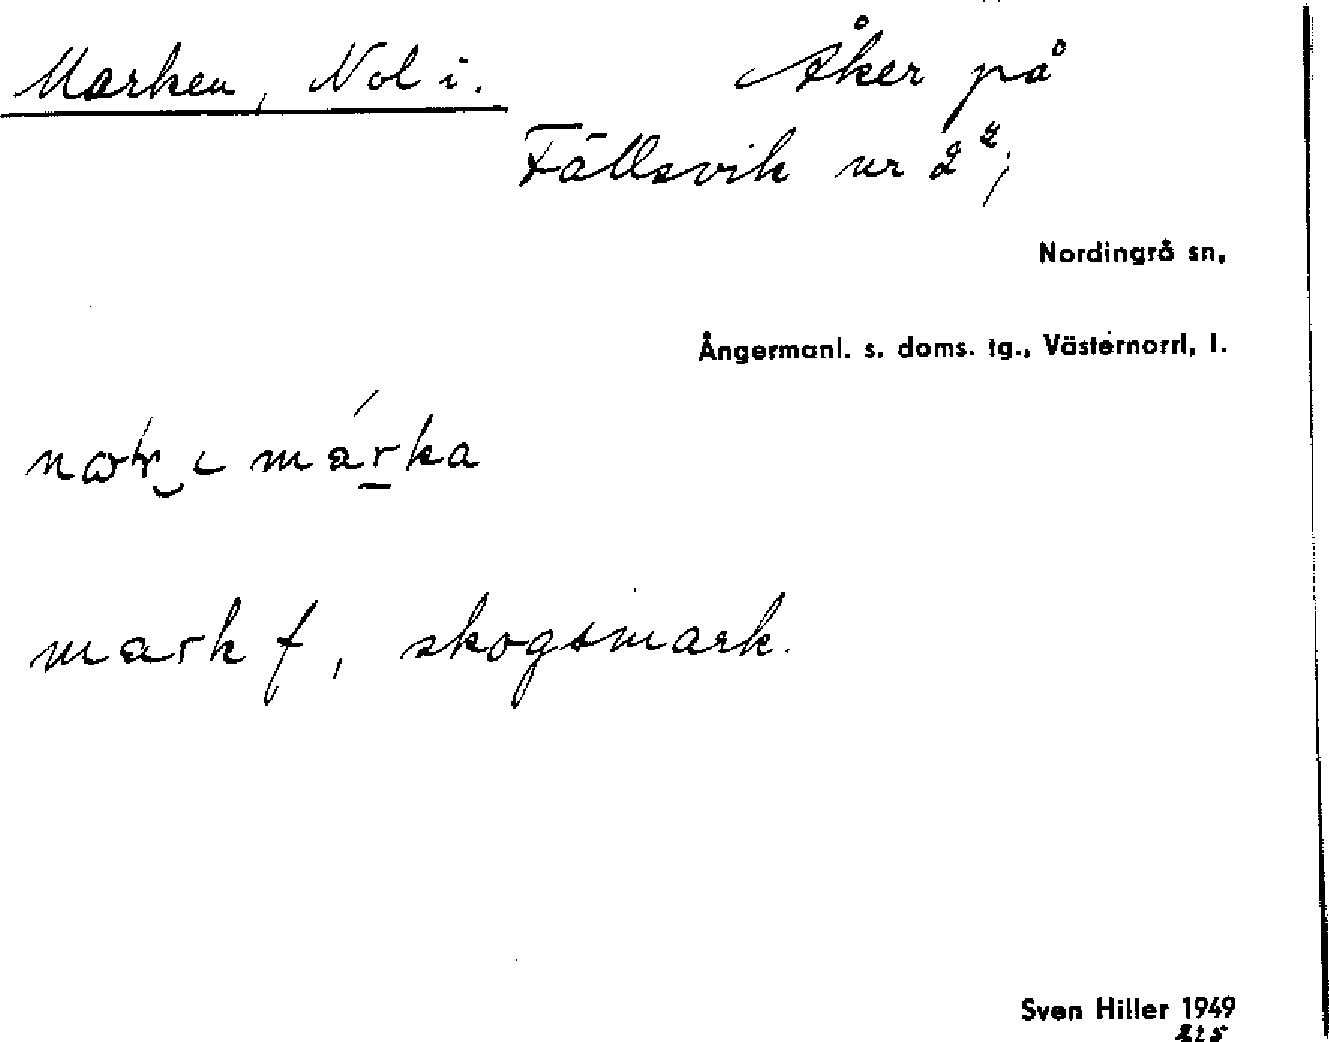 Marken, Nol i. Åker på
Fällsvik nr 2²,
Nordingrå sn,
Ångermanl. s. doms. tg., Västernorrl, l.
i marka
mark f, skogsmark.
Sven Hiller 1949